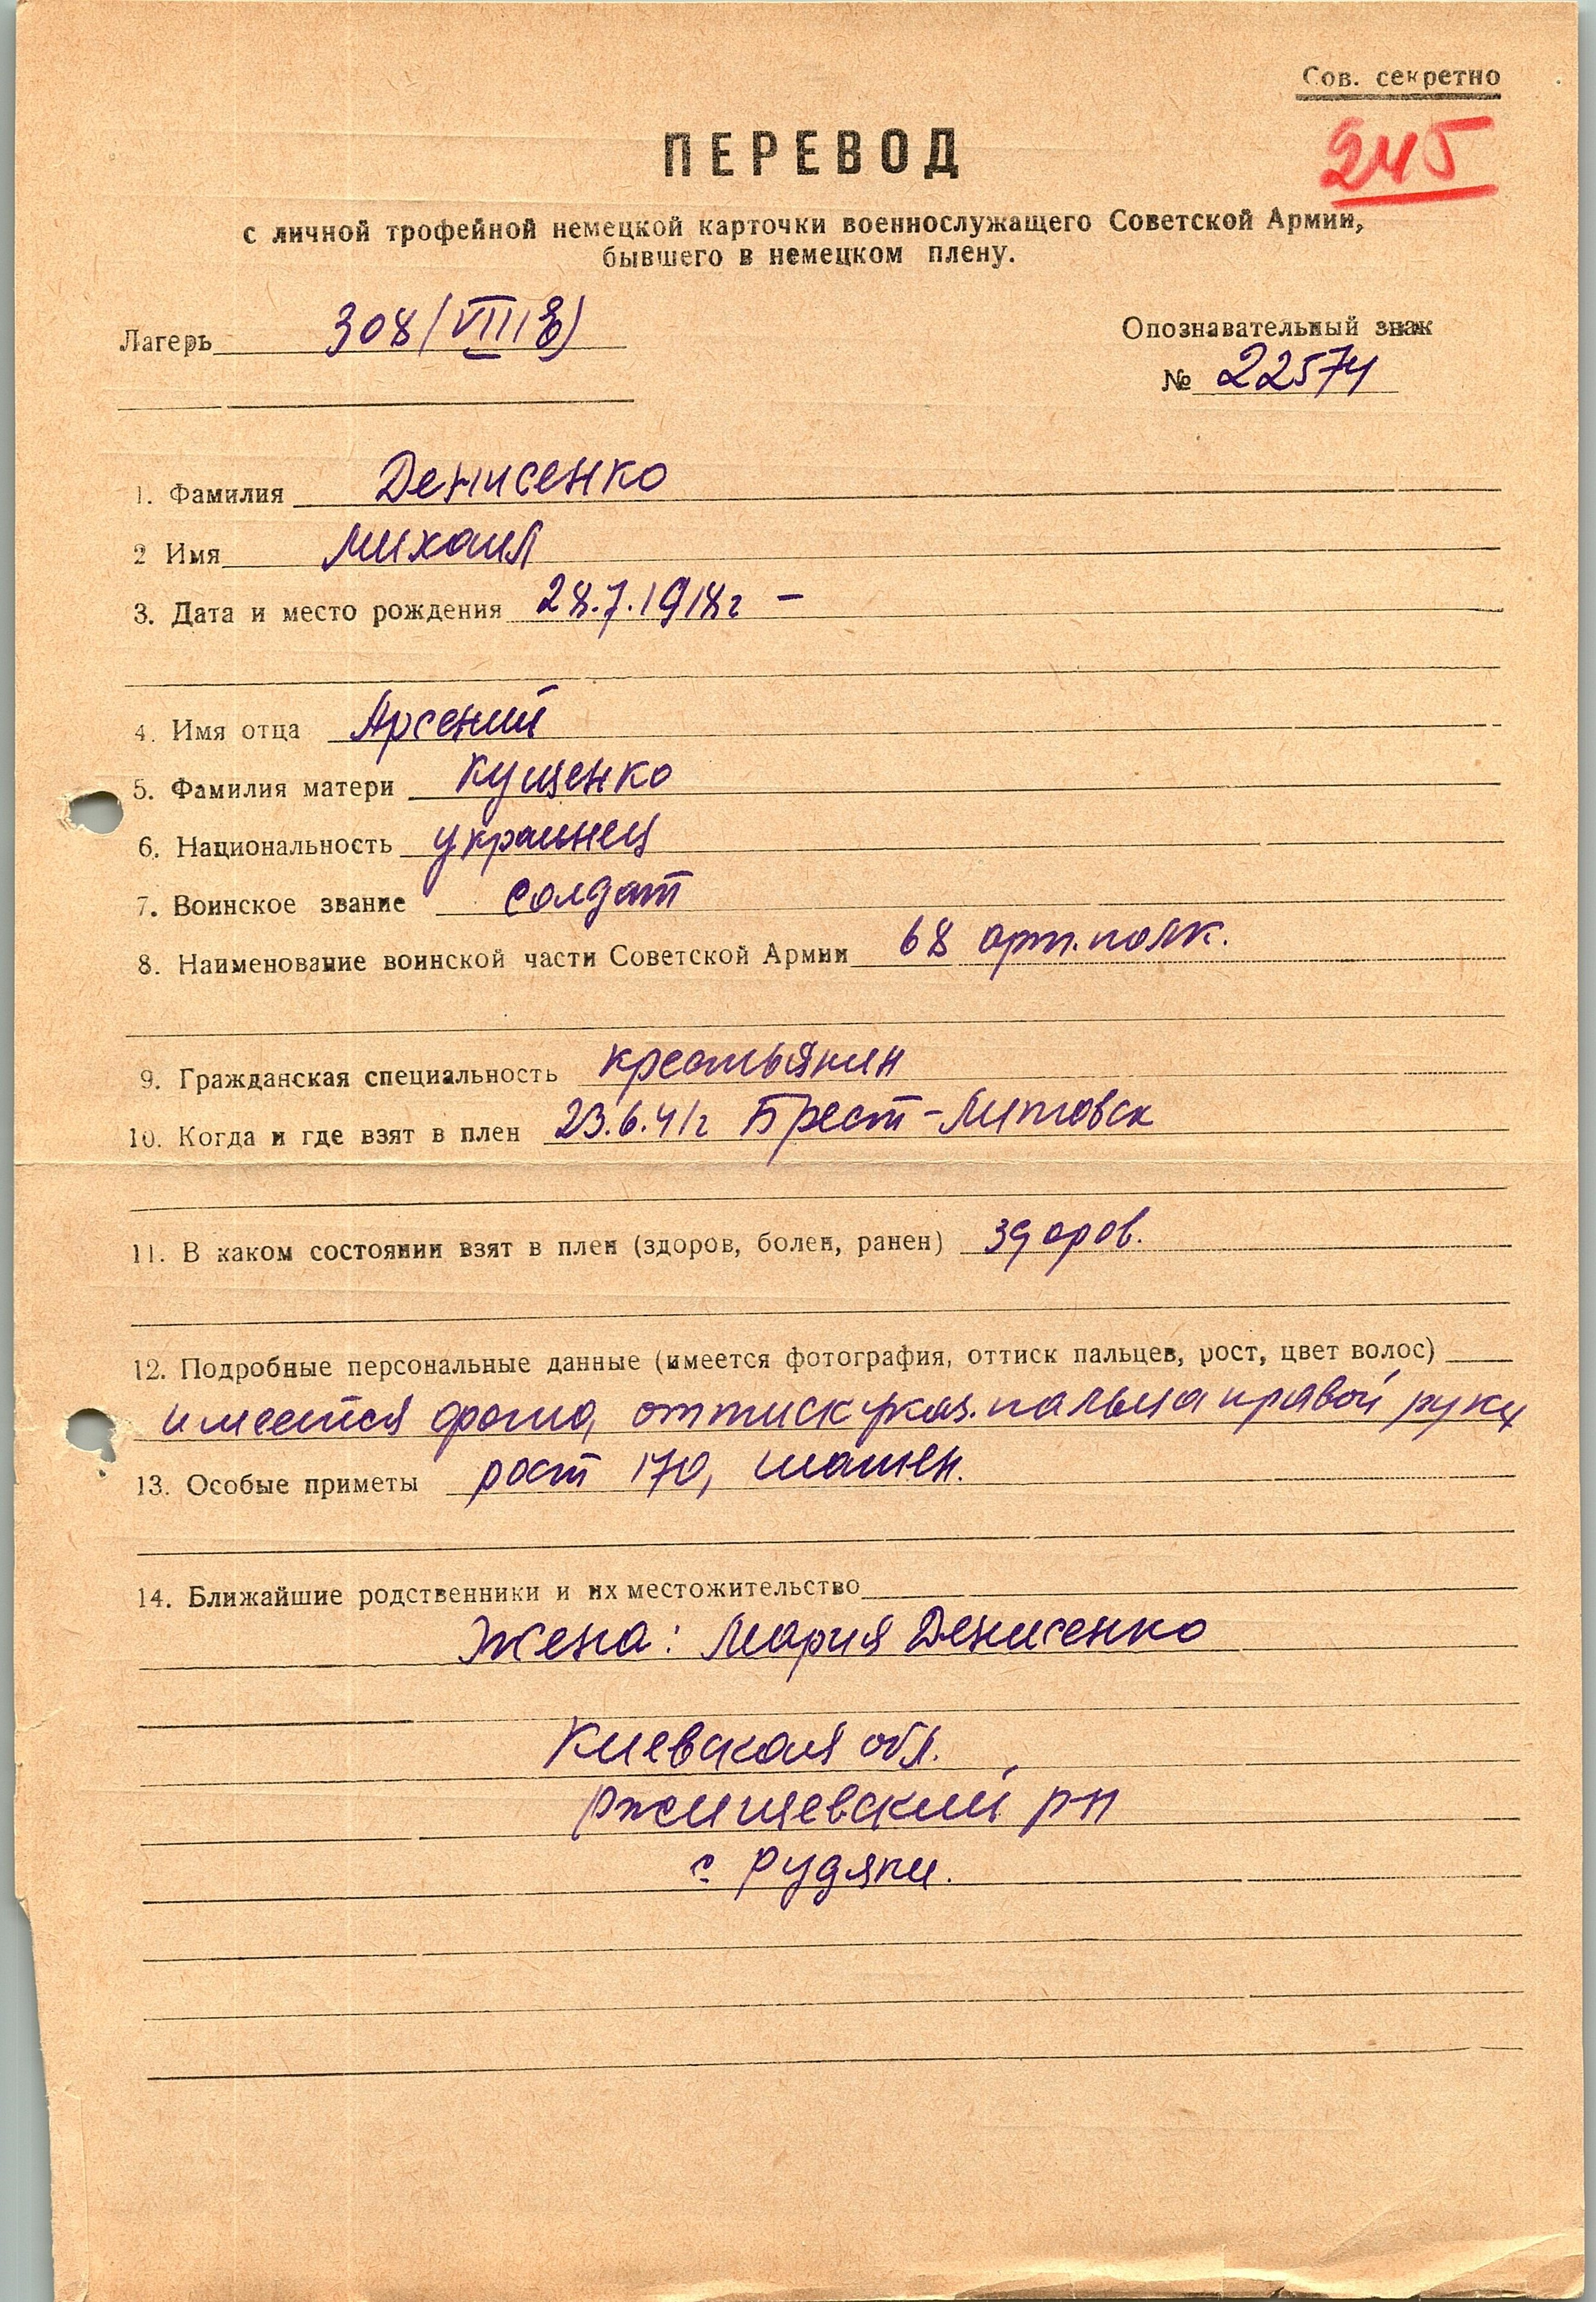 Сов. секретно
245
ПЕРЕВОД
с личной трофейной немецкой карточки военнослужащего Советской Армии,
бывшего в немецком плену.
Лагерь 308 (VIII E)
Опознавательный знак
№ 22574
1. Фамилия Денисенко
2 Имя Михаил
3. Дата и место рождения 28.7.1918г –
4. Имя отца Арсений
5. Фамилия матери Кущенко
6. Национальность украинец
7. Воинское звание солдат
8. Наименование воинской части Советской Армии 68 арт. полк.
9. Гражданская специальность крестьянин
10. Когда и где взят в плен 23.6.41г Брест-Литовск
11. В каком состоянии взят в плен (здоров, болен, ранен) здоров.
12. Подробные персональные данные (имеется фотография, оттиск пальцев, рост, цвет волос)
имеется фото, оттиск указ. пальца правой руки
13. Особые приметы рост 170, шатен.
14. Ближайшие родственники и их местожительство
Жена: Мария Денисенко
Киевская обл.
Ржищевский рн
с. Рудяки.